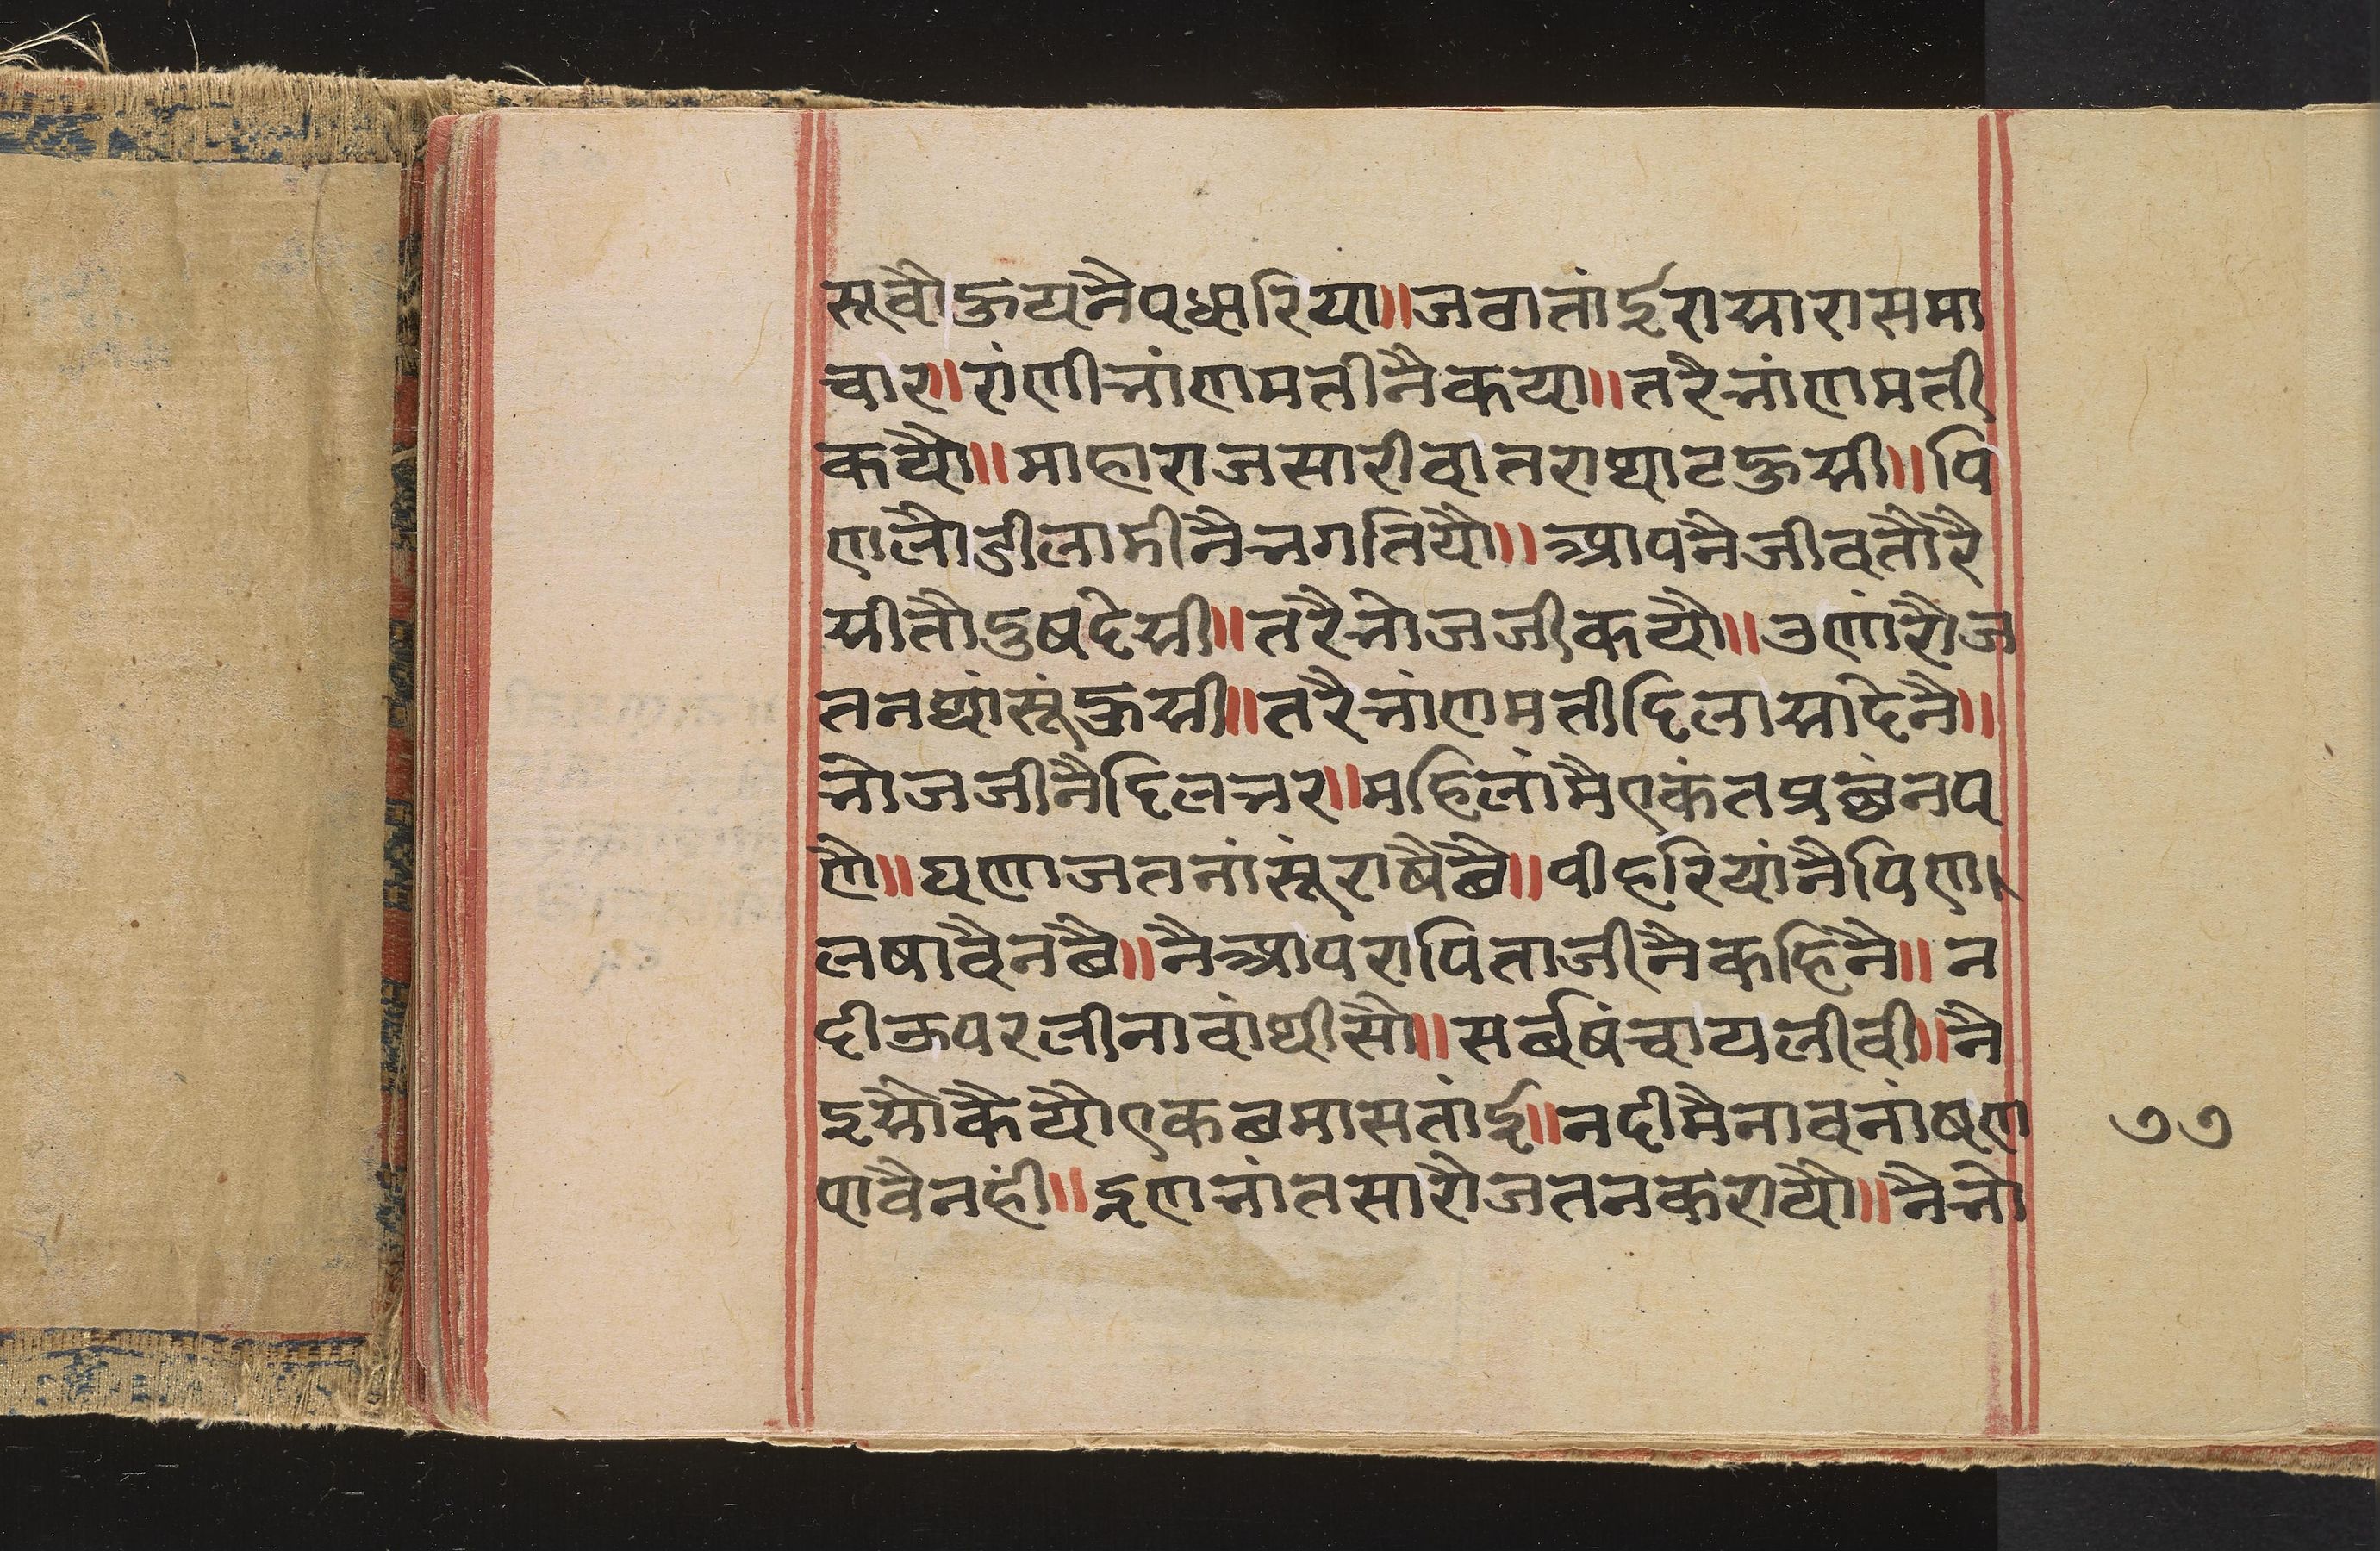 सूवौहुयनैपधारिया॥जबातांईरामारासमा
चार॥रांणीभांणमतीनैकया॥तरैभांणमती
कयौ॥माहाराजसारीबातराथाटहुसी॥पि
णलौडीलाडीनैभगतियौ॥आपनैजीवतौरै
सीतौदुषदेसी॥तरैभोजजीकयौ॥उणांरौज
तनथांसूंहुसी॥तरैभांणमतीदिलासादेनै॥
भोजजीनैदिलभर॥महिलांमैएकंतप्रछंनप
णै॥घणाजतनांसूंराषैछै॥पीहरियांनैपिण।
लषावैनछै॥नैआपरापिताजीनैकहिनै॥न
दीऊपरलीनावांथीसौ॥सर्बषंचायलीवी॥नै
इसौकैयौएकछमासतांई॥नदीमैनावनांषण
पावैनहीं॥इणभांतसारौजतनकरायौ॥नैभो
७७